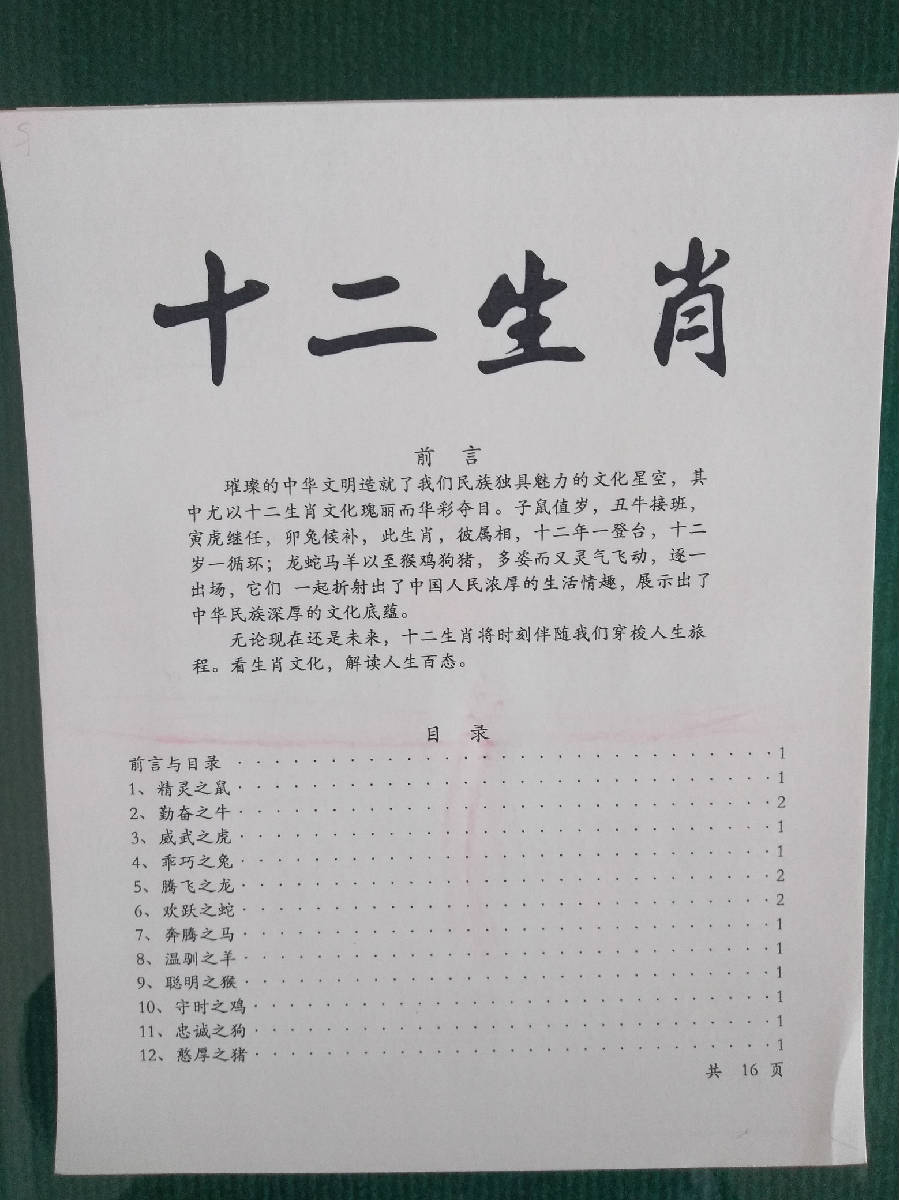 十二生肖
前 言
璀璨的中华文明造就了我们民族独具魅力的文化星空，其
中尤以十二生肖文化瑰丽而华彩夺目。子鼠值岁，丑牛接班，
寅虎继任，卯兔候补，此生肖，彼属相，十二年一登台，十二
岁一循环；龙蛇马羊以至猴鸡狗猪，多姿而又灵气飞动，逐一
出场，它们 一起折射出了中国人民浓厚的生活情趣，展示出了
中华民族深厚的文化底蕴。
无论现在还是未来，十二生肖将时刻伴随我们穿梭人生旅
程。看生肖文化，解读人生百态。
目 录
前言与目录 ································ 1
1、精灵之鼠································ 1
2、勤奋之牛································ 2
3、威武之虎································ 1
4、乖巧之兔································ 1
5、腾飞之龙································ 2
6、欢跃之蛇································ 2
7、奔腾之马································ 1
8、温驯之羊································ 1
9、聪明之猴································ 1
10、守时之鸡······························· 1
11、忠诚之狗······························· 1
12、憨厚之猪······························· 1
共 16 页